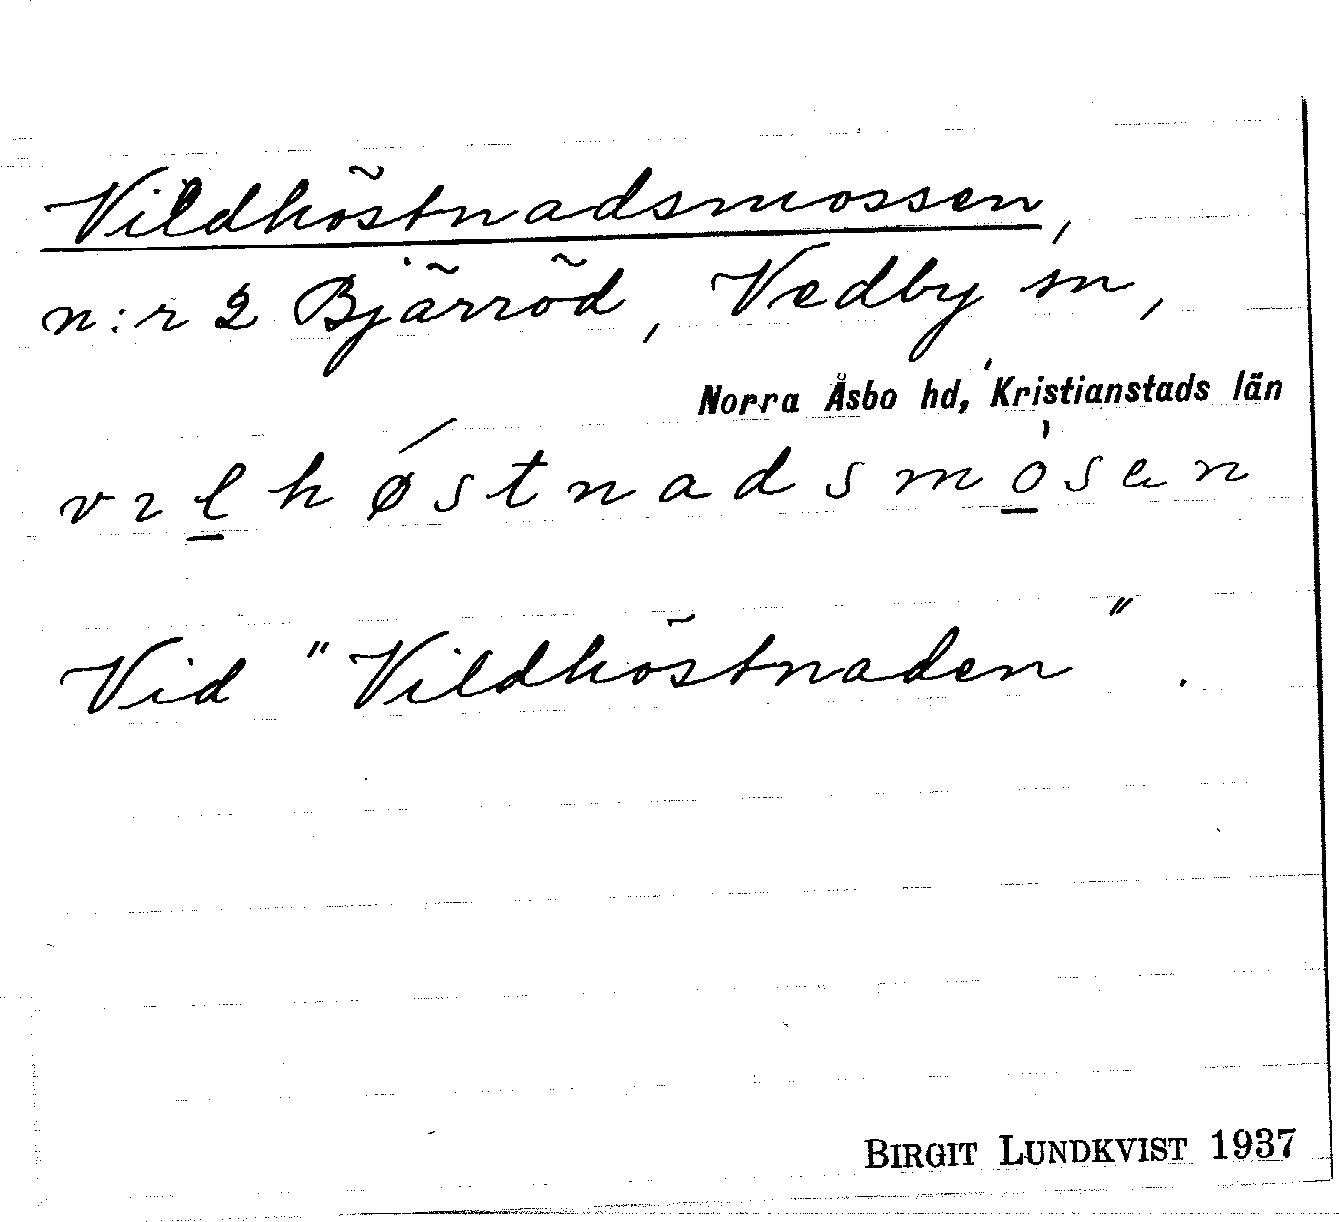 Vildhöstnadsmossen,
n:r 2 Bjärröd, Vedby sn,
Norra Åsbo hd, Kristianstads län
vılhøstnadsmòsen
Vid "Vildhöstnaden".
BIRGIT LUNDKVIST 1937